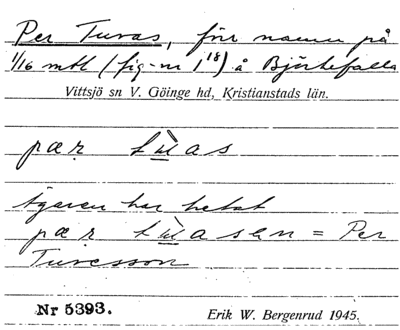 Per Turas, för namn på
1/16 mtl (fig-nr 1¹⁸) å Björkefalla
Vittsjö sn V. Göinge hd, Kristianstads län.
pæṛ tù̲as
Ägaren har hetat
pæṛ tù̲asen = Per
Turesson
Nr 5393. Erik W. Bergenrud 1945.